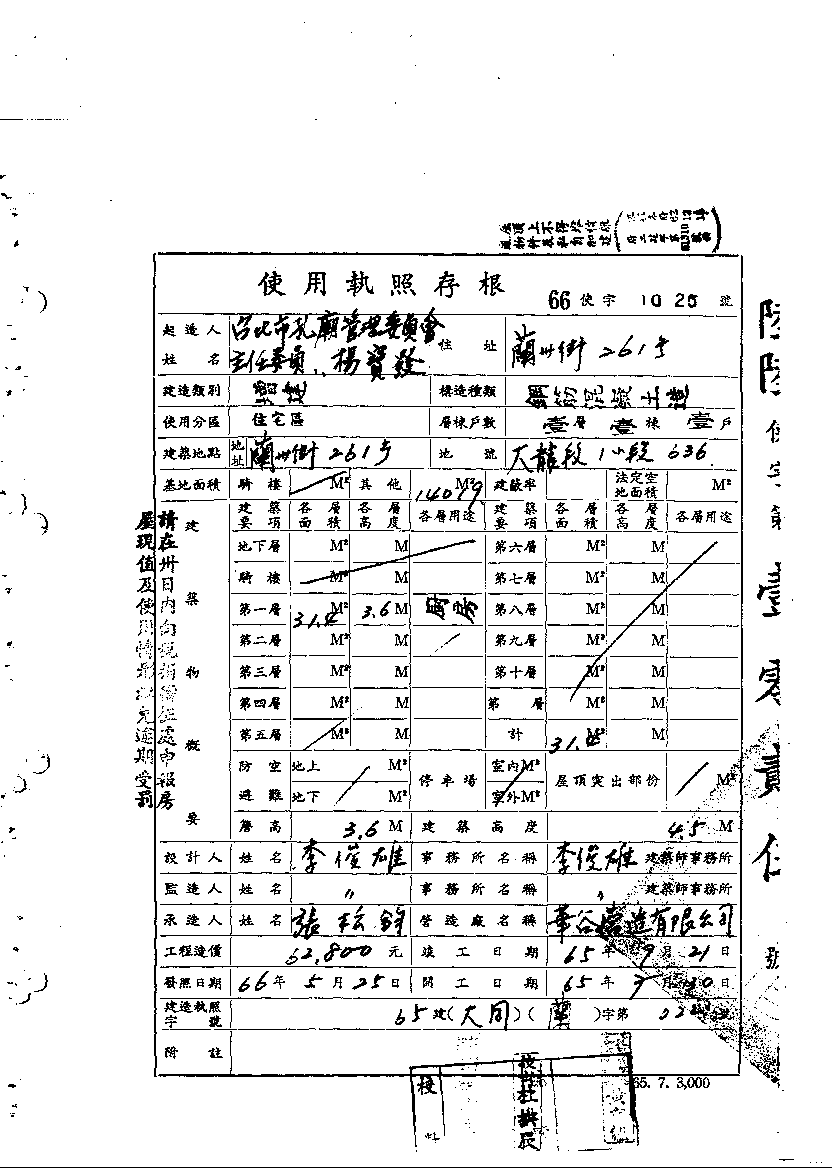 使用執照存根
66 使字 1025 號
起造人姓名 台北市孔廟管理委員會 主任委員 楊寶發 住址 蘭州街261号
建造類別 增建 構造種類 鋼筋混凝土造
使用分區 住宅區 層棟戶數 壹層 壹棟 壹戶
建築地點 地址 蘭州街261号 地號 大龍段1小段636
基地面積 騎樓 M² 其他 14079 M² 建蔽率 法定空地面積 M²
建築物概要
建築要項 各層面積 各層高度 各層用途 建築要項 各層面積 各層高度 各層用途
地下層 M² M 第六層 M² M
騎樓 M² M 第七層 M² M
第一層 31.4 M² 3.6 M 廚房 第八層 M² M
第二層 M² M 第九層 M² M
第三層 M² M 第十層 M² M
第四層 M² M 第 層 M² M
第五層 M² M 計 31.4 M² M
防空避難 地上 M² 地下 M² 停車場 室內M² 室外M² 屋頂突出部份 M²
簷高 3.6 M 建築高度 4.5 M
設計人 姓名 李俊雄 事務所名稱 李俊雄 建築師事務所
監造人 姓名 〃 事務所名稱 〃 建築師事務所
承造人 姓名 張松 營造廠名稱 華谷營造有限公司
工程造價 62,800 元 竣工日期 65年9月21日
發照日期 66年5月25日 開工日期 65年7月30日
建造執照字號 65建(大同)(蘭)字第
附註
請在卅日內向稅捐稽征處申報房
屋現值及使用情形以免逾期受罰
使字第 壹零貳 號
校對
65. 7. 3,000